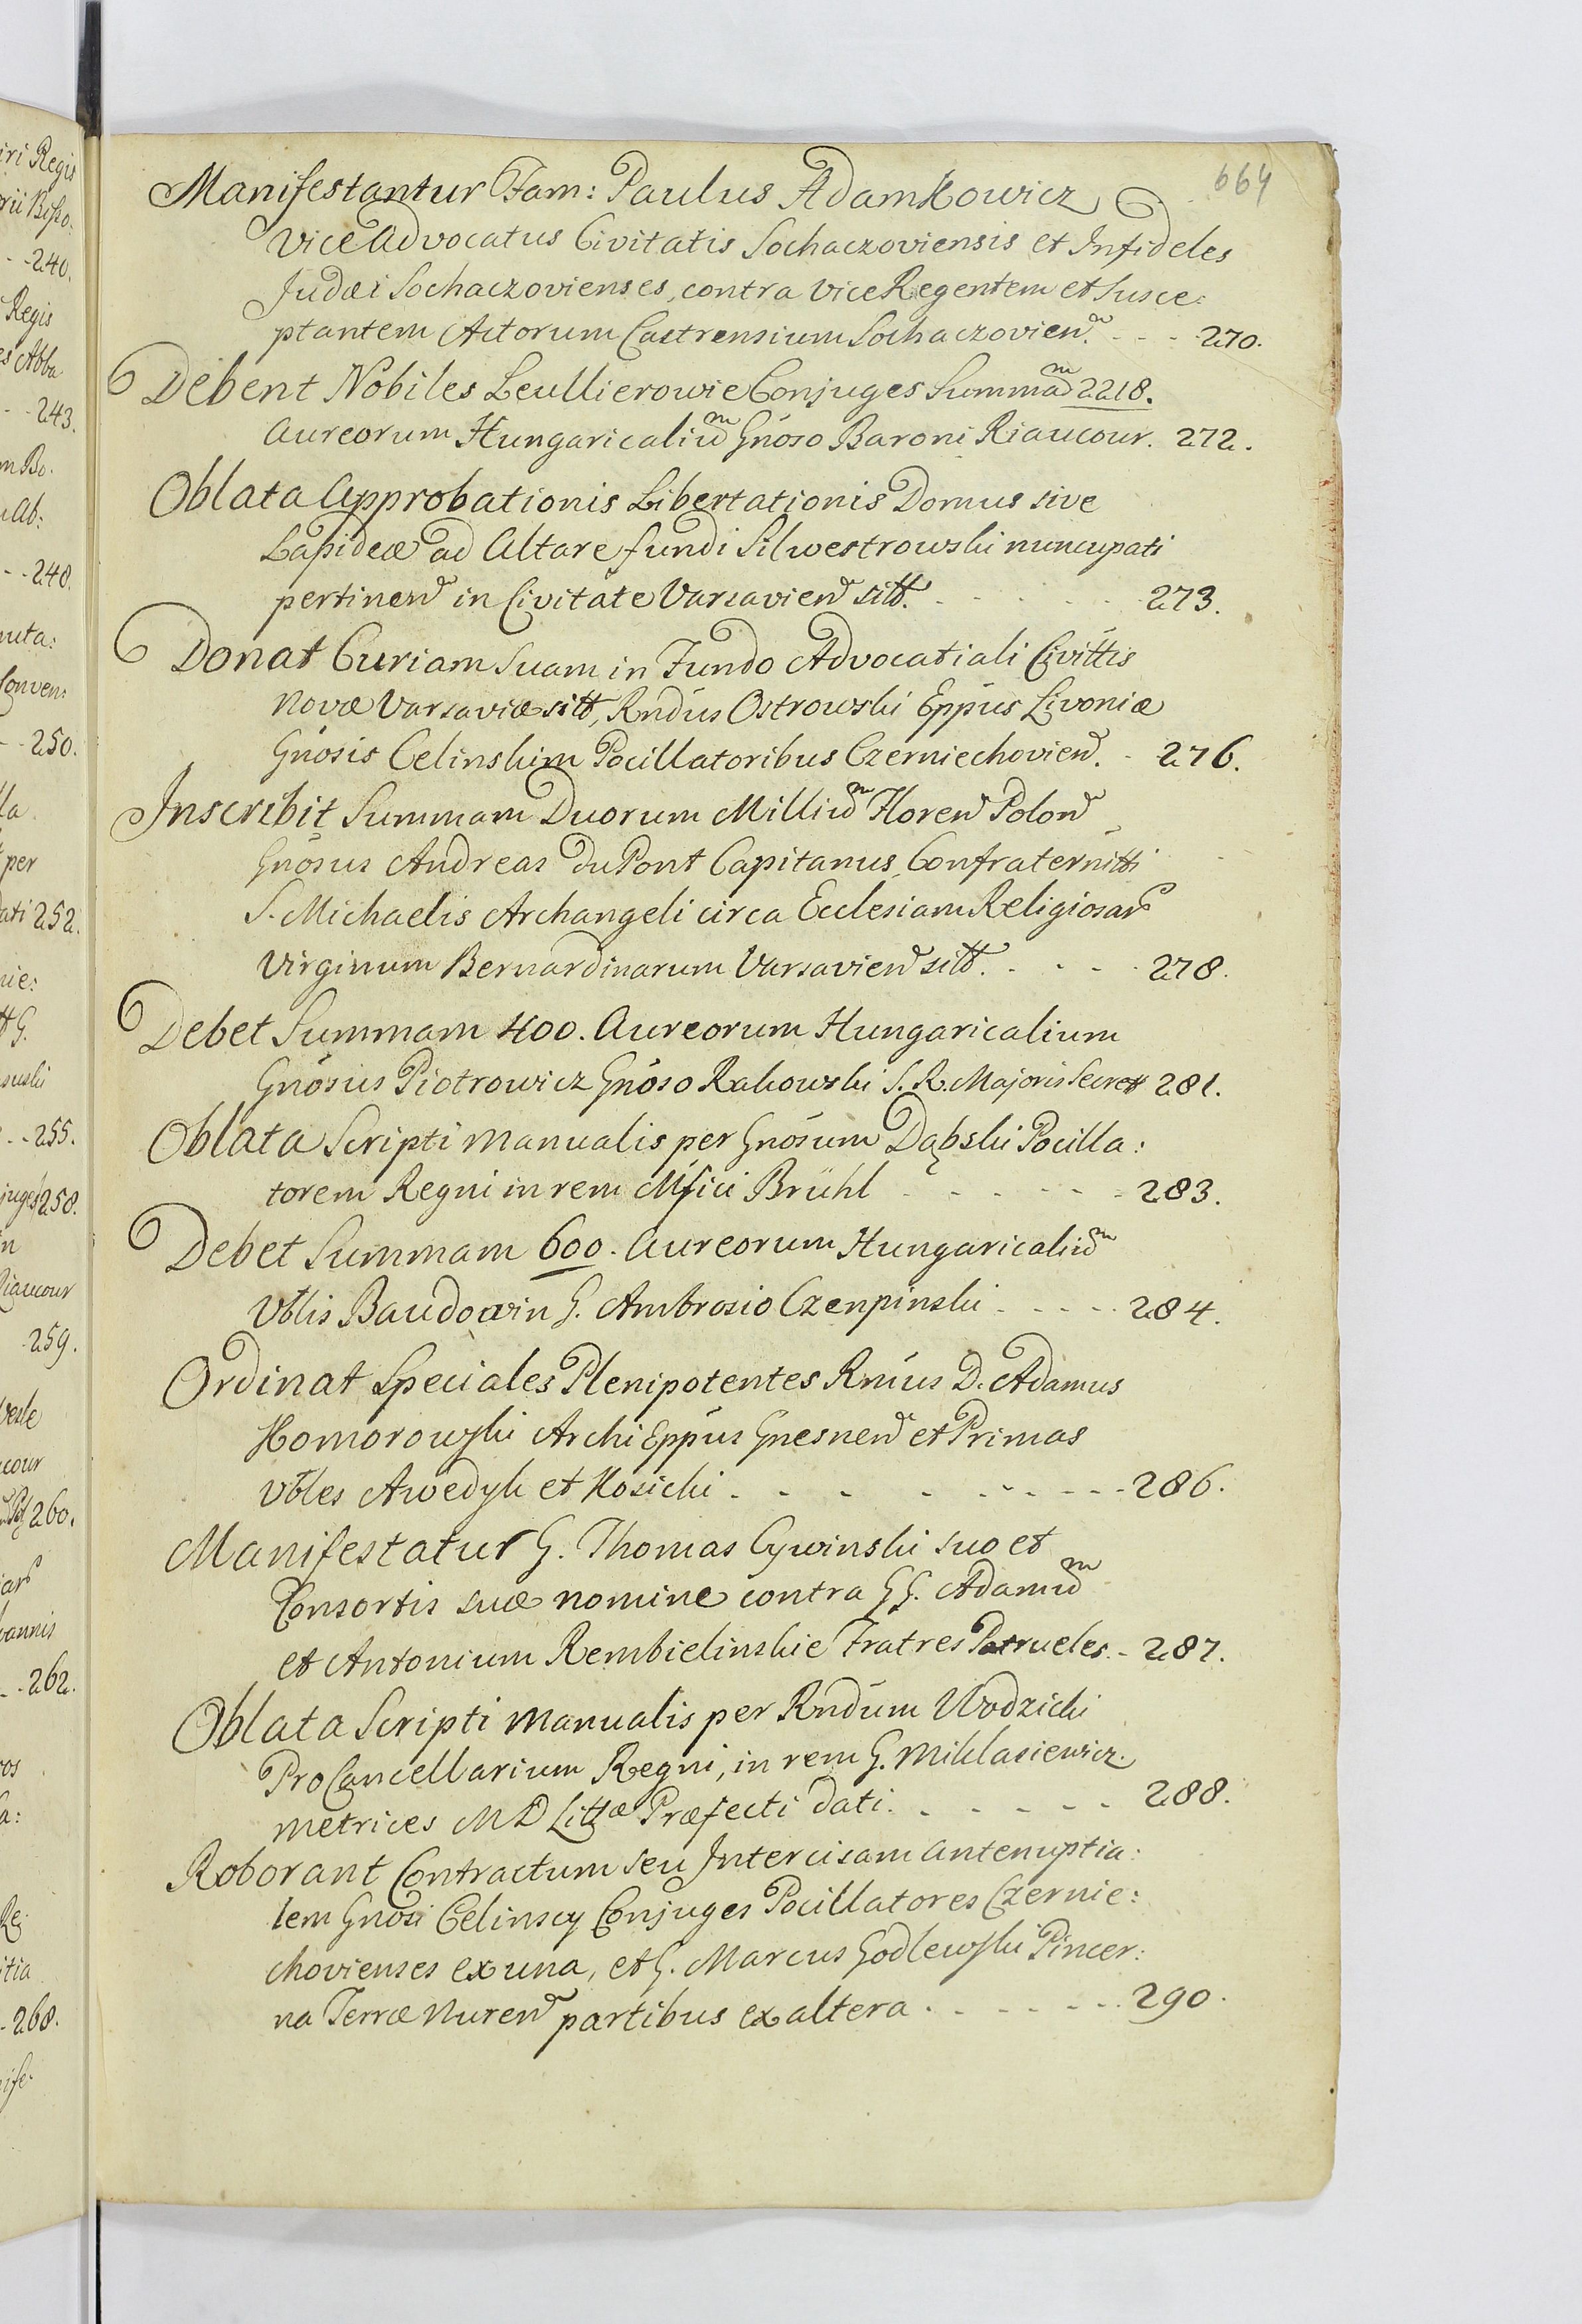 664
Manifestantur Fam: Paulus Adamkowicz
Vice Advocatus Civitatis Sochaczoviensis et Infideles
Judæi Sochaczovienses, contra Vice Regentem et Susce:
ptantem Actorum Castrensium Sochaczovien. - - - 270.
Debent Nobiles Leullierowie Conjuges Summam 2218.
Aureorum Hungaricalium Gnoso Baroni Riaucour. 272.
Oblata Approbationis Libertationis Domus sive
Lapideæ ad Altare fundi Silwestrowski nuncupati
pertinen in Civitate Varsavien sitt. - - - - - 273.
Donat Curiam Suam in Fundo Advocatiali Civittis
Novæ Varsaviæ sitt, Rndus Ostrowski Eppus Livoniæ
Gnosis Celinskim Pocillatoribus Czerniechovien. - 276.
Inscribit Summam Duorum Millium Floren Polon
Gnosus Andreas Du Pont Capitanus, Confraternitti
S. Michaelis Archangeli circa Ecclesiam Religiosar
Virginum Bernardinarum Varsavien sitt. - - - - 278.
Debet Summam 400. Aureorum Hungaricalium
Gnosus Piotrowicz Gnoso Rakowski S. R. Majoris Secrett 281.
Oblata Scripti Manualis per Gnosum Dąbski Pocilla:
torem Regni in rem Mfici Brühl - - - - - - 283.
Debet Summam 600. Aureorum Hungaricalium
Vblis Baudowin G. Ambrosio Czenpinski - - - - - 284.
Ordinat Speciales Plenipotentes Rmus D. Adamus
Komorowski Archi Eppus Gnesnen et Primas
Vbles Awedyk et Kosicki - - - - - - - - 286.
Manifestatur G. Thomas Cywinski suo et
Consortis suæ nomine contra GG. Adamum
et Antonium Rembielinskie Fratres Patrueles. - 287.
Oblata Scripti Manualis per Rndum Wodzicki
Pro Cancellarium Regni, in rem G. Miklasiewicz
Metrices M D Littæ Præfecti dati. - - - - - - 288.
Roborant Contractum seu Intercisam antenuptia:
lem Gnosi Celinscy Conjuges Pocillatores Czernie:
chovienses ex una, et G. Marcus Godlewski Pincer:
na Terræ Nuren partibus ex altera - - - - - - - 290.